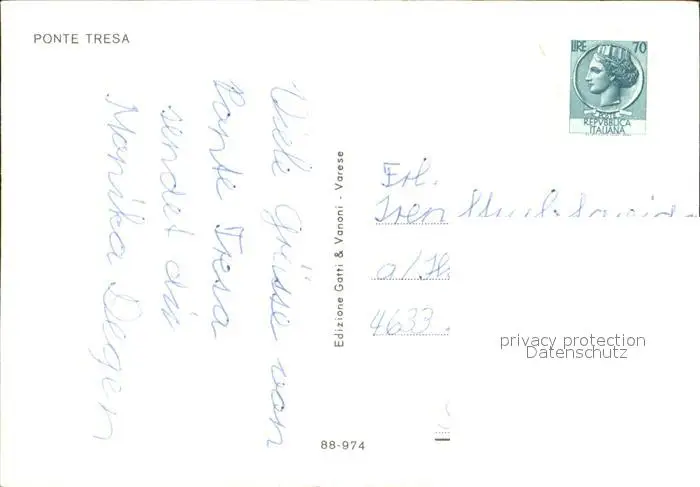 PONTE TRESA
LIRE 70
POSTE
REPVBBLICA
ITALIANA
Viele Grüsse von
Ponte Tresa
sendet dir
Monika Degen
Edizione Gatti & Vanoni - Varese
88-974
Frl.
a/H
4633
privacy protection
Datenschutz